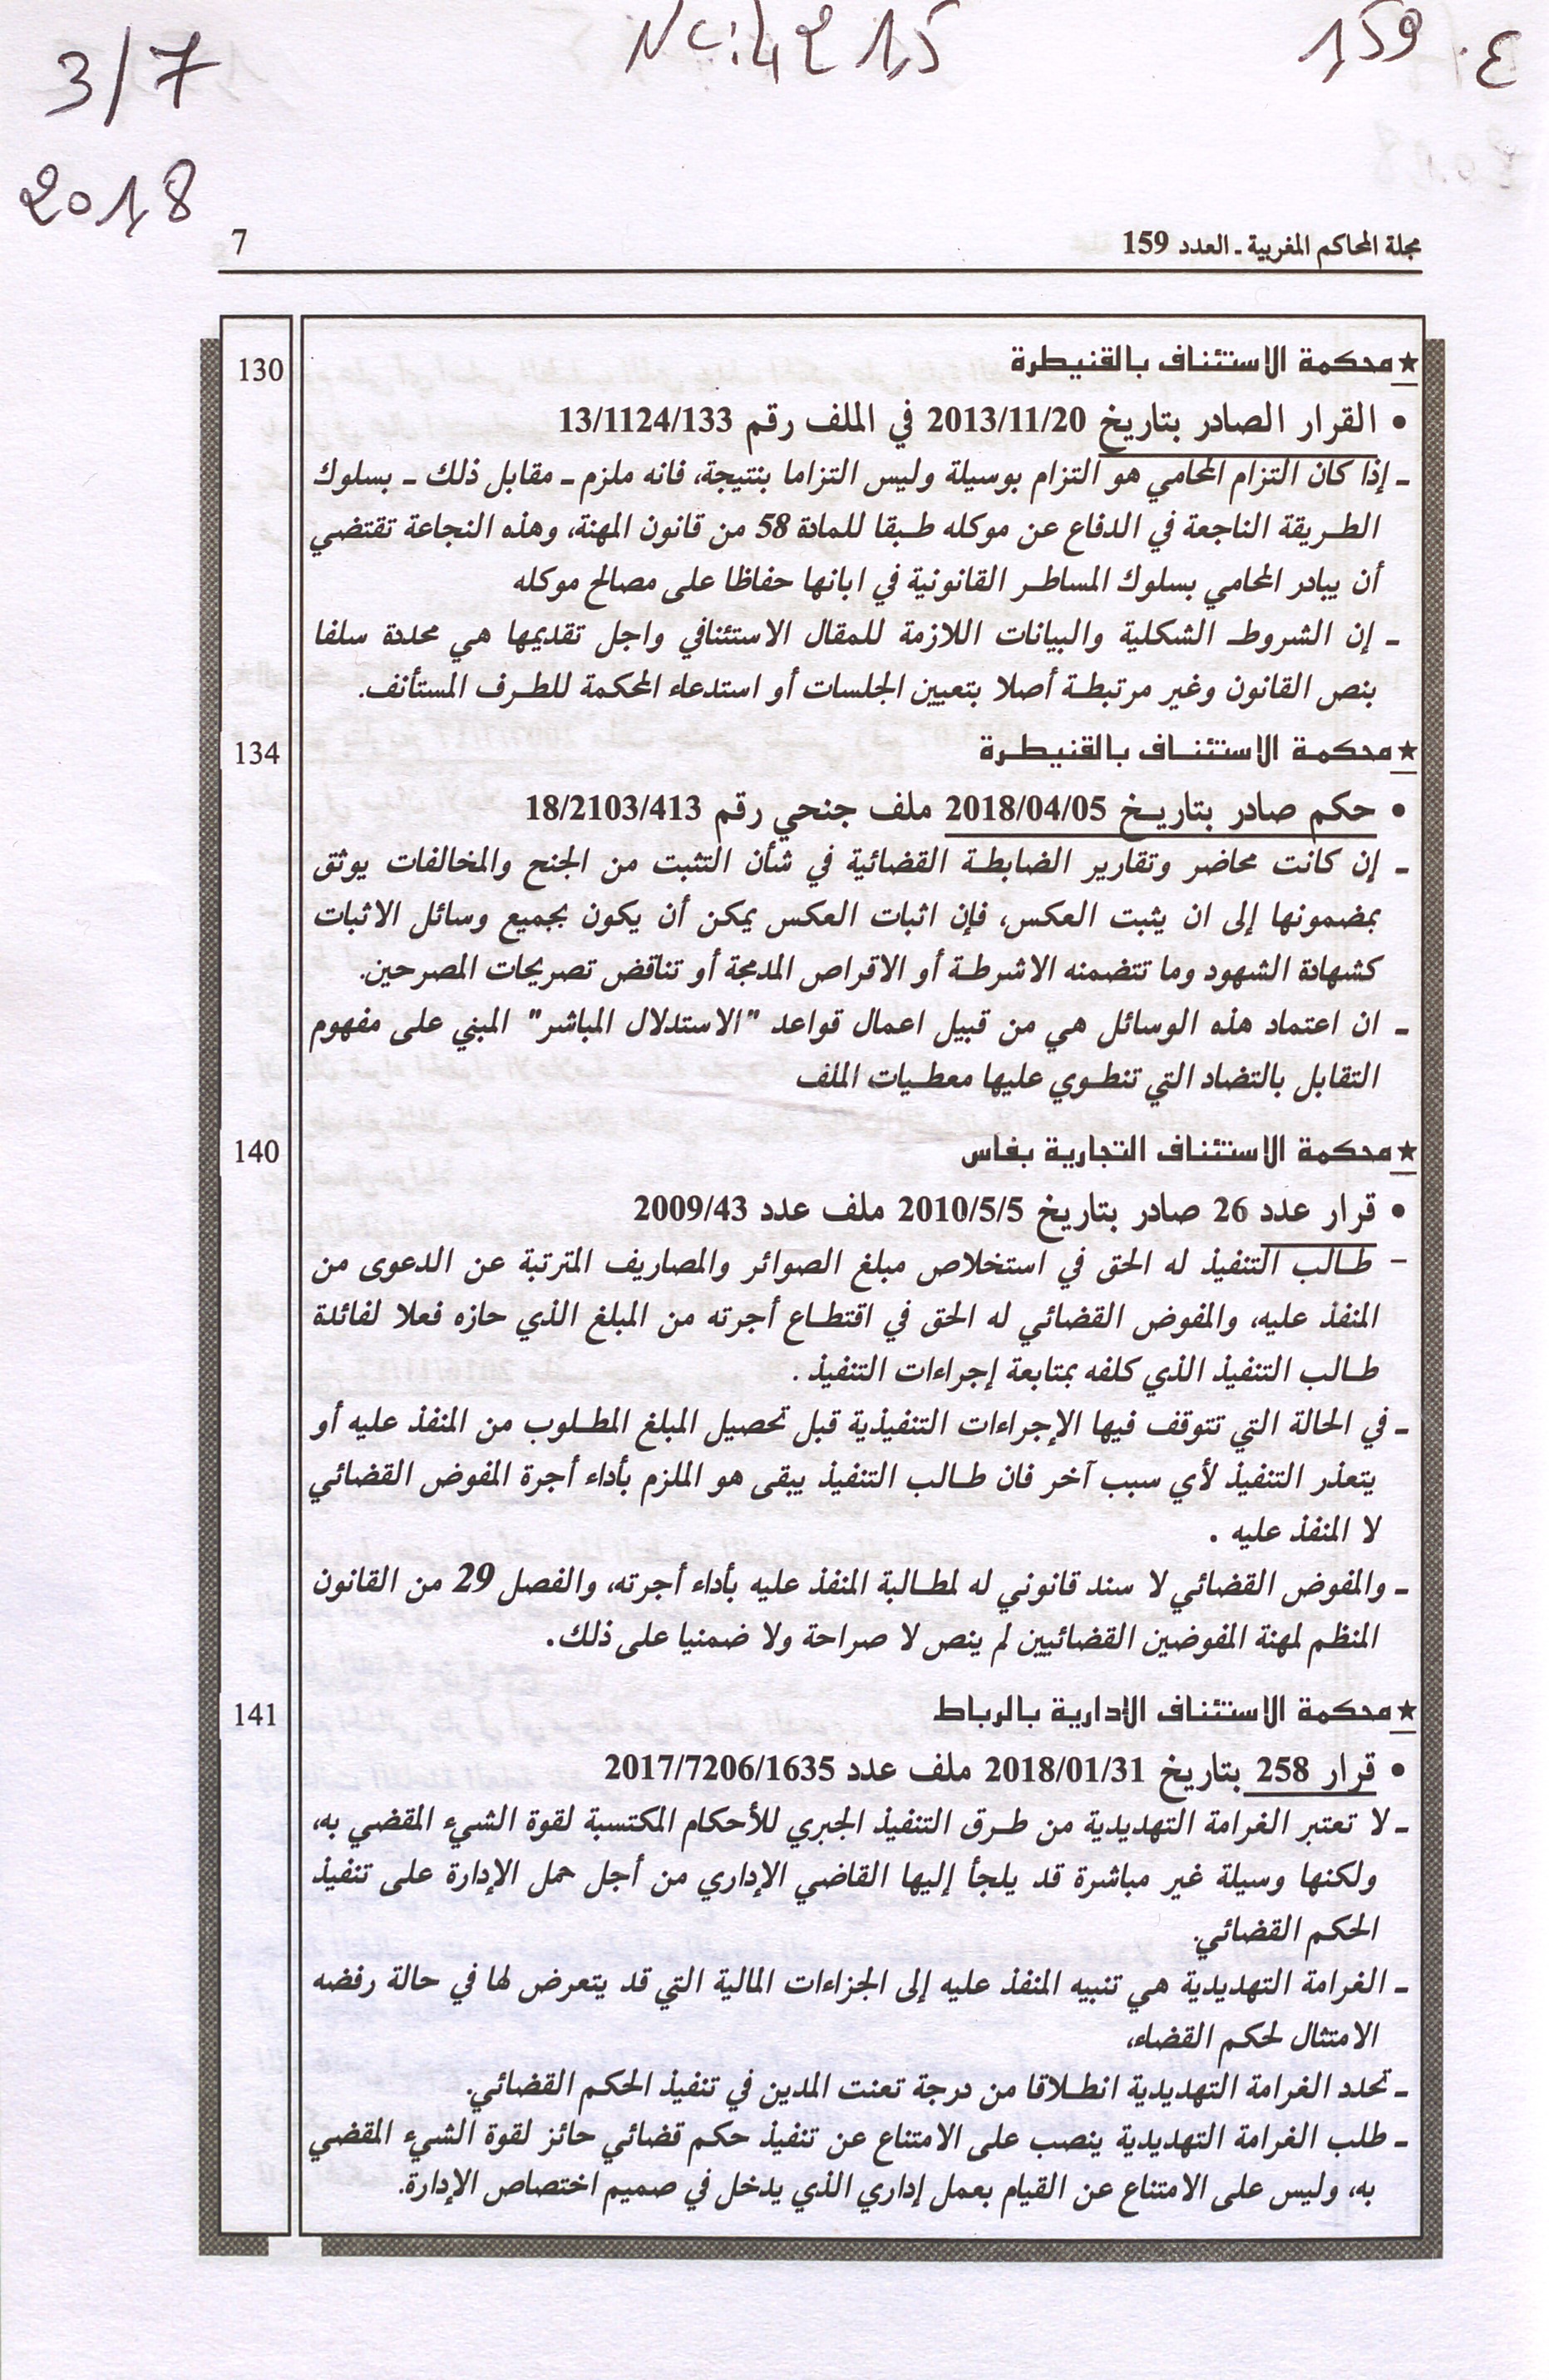 3/7
2018
159 ع.
مجلة المحاكم المغربية ـ العدد 159
7
★ محكمة الاستئناف بالقنيطرة
130
• القرار الصادر بتاريخ 2013/11/20 في الملف رقم 13/1124/133
ـ إذا كان التزام المحامي هو التزام بوسيلة وليس التزاما بنتيجة، فانه ملزم ـ مقابل ذلك ـ بسلوك
الطريقة الناجعة في الدفاع عن موكله طبقا للمادة 58 من قانون المهنة، وهذه النجاعة تقتضي
أن يبادر المحامي بسلوك المساطر القانونية في ابانها حفاظا على مصالح موكله
ـ إن الشروط الشكلية والبيانات اللازمة للمقال الاستئنافي واجل تقديمها هي محددة سلفا
بنص القانون وغير مرتبطة أصلا بتعيين الجلسات أو استدعاء المحكمة للطرف المستأنف.
★ محكمة الاستئناف بالقنيطرة
134
• حكم صادر بتاريخ 2018/04/05 ملف جنحي رقم 18/2103/413
ـ إن كانت محاضر وتقارير الضابطة القضائية في شأن التثبت من الجنح والمخالفات يوثق
بمضمونها إلى ان يثبت العكس، فإن اثبات العكس يمكن أن يكون بجميع وسائل الاثبات
كشهادة الشهود وما تتضمنه الاشرطة أو الاقراص المدمجة أو تناقض تصريحات المصرحين.
ـ ان اعتماد هذه الوسائل هي من قبيل اعمال قواعد "الاستدلال المباشر" المبني على مفهوم
التقابل بالتضاد التي تنطوي عليها معطيات الملف
★ محكمة الاستئناف التجارية بفاس
140
• قرار عدد 26 صادر بتاريخ 2010/5/5 ملف عدد 2009/43
– طالب التنفيذ له الحق في استخلاص مبلغ الصوائر والمصاريف المترتبة عن الدعوى من
المنفذ عليه، والمفوض القضائي له الحق في اقتطاع أجرته من المبلغ الذي حازه فعلا لفائدة
طالب التنفيذ الذي كلفه بمتابعة إجراءات التنفيذ .
ـ في الحالة التي تتوقف فيها الإجراءات التنفيذية قبل تحصيل المبلغ المطلوب من المنفذ عليه أو
يتعذر التنفيذ لأي سبب آخر فان طالب التنفيذ يبقى هو الملزم بأداء أجرة المفوض القضائي
لا المنفذ عليه .
ـ والمفوض القضائي لا سند قانوني له لمطالبة المنفذ عليه بأداء أجرته، والفصل 29 من القانون
المنظم لمهنة المفوضين القضائيين لم ينص لا صراحة ولا ضمنيا على ذلك.
★ محكمة الاستئناف الإدارية بالرباط
141
• قرار 258 بتاريخ 2018/01/31 ملف عدد 2017/7206/1635
ـ لا تعتبر الغرامة التهديدية من طرق التنفيذ الجبري للأحكام المكتسبة لقوة الشيء المقضي به،
ولكنها وسيلة غير مباشرة قد يلجأ إليها القاضي الإداري من أجل حمل الإدارة على تنفيذ
الحكم القضائي.
ـ الغرامة التهديدية هي تنبيه المنفذ عليه إلى الجزاءات المالية التي قد يتعرض لها في حالة رفضه
الامتثال لحكم القضاء،
ـ تحدد الغرامة التهديدية انطلاقا من درجة تعنت المدين في تنفيذ الحكم القضائي.
ـ طلب الغرامة التهديدية ينصب على الامتناع عن تنفيذ حكم قضائي حائز لقوة الشيء المقضي
به، وليس على الامتناع عن القيام بعمل إداري الذي يدخل في صميم اختصاص الإدارة.